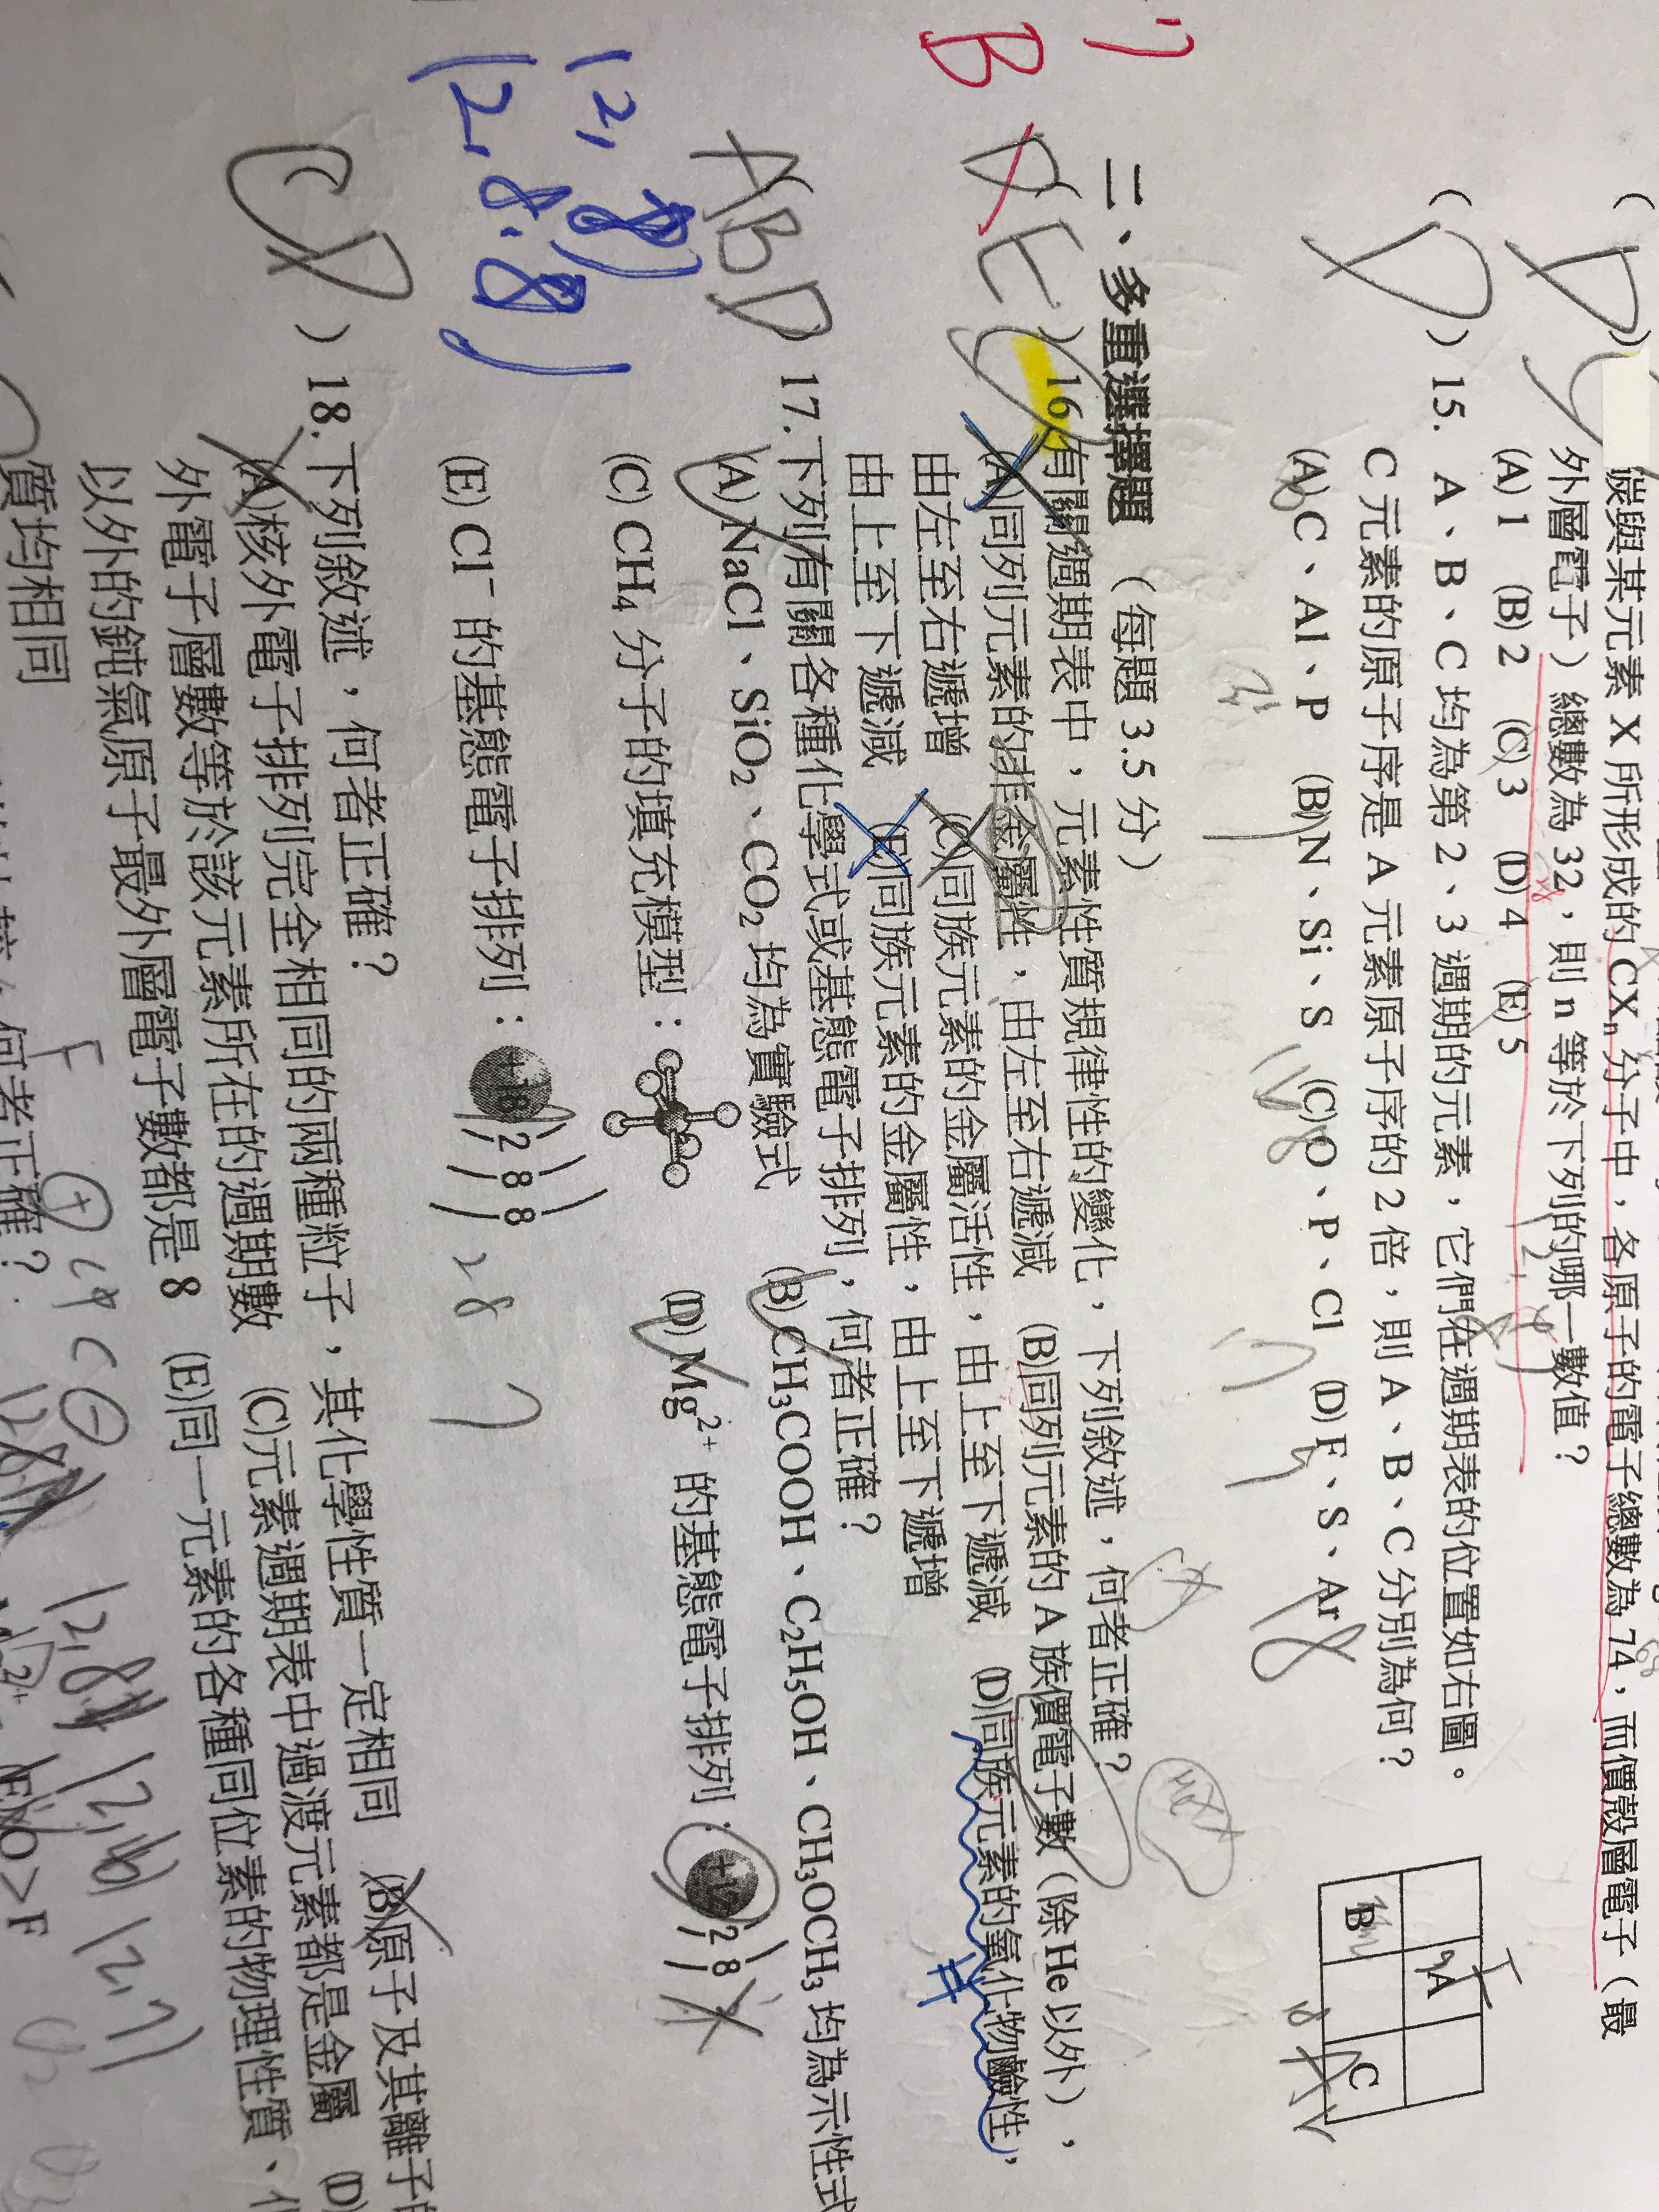 碳與某元素 X 所形成的 CXₙ 分子中，各原子的電子總數為 74，而價殼層電子（最
外層電子）總數為 32，則 n 等於下列的哪一數值？
(A) 1 (B) 2 (C) 3 (D) 4 (E) 5
D ）15. A、B、C 均為第 2、3 週期的元素，它們在週期表的位置如右圖。
C 元素的原子序是 A 元素原子序的 2 倍，則 A、B、C 分別為何？
(A)C、Al、P (B)N、Si、S (C)O、P、Cl (D)F、S、Ar
A
B
C
二、多重選擇題 （每題 3.5 分）
B
E ）16.有關週期表中，元素性質規律性的變化，下列敘述，何者正確？
(A)同列元素的非金屬性，由左至右遞減 (B)同列元素的 A 族價電子數（除 He 以外），
由左至右遞增 (C)同族元素的金屬活性，由上至下遞減 (D)同族元素的氧化物鹼性，
由上至下遞減 (E)同族元素的金屬性，由上至下遞增
ABD ）17.下列有關各種化學式或基態電子排列，何者正確？
(A) NaCl、SiO₂、CO₂ 均為實驗式 (B)CH₃COOH、C₂H₅OH、CH₃OCH₃ 均為示性式
(C) CH₄ 分子的填充模型： (D)Mg²⁺ 的基態電子排列： +12 2 8
(E) Cl⁻ 的基態電子排列： +18 2 8 8
(2, 8)
(2, 8, 8)
CD ）18.下列敘述，何者正確？
(A)核外電子排列完全相同的兩種粒子，其化學性質一定相同 (B)原子及其離子的
外電子層數等於該元素所在的週期數 (C)元素週期表中過渡元素都是金屬 (D)
以外的鈍氣原子最外層電子數都是 8 (E)同一元素的各種同位素的物理性質、化
質均相同
何者正確？